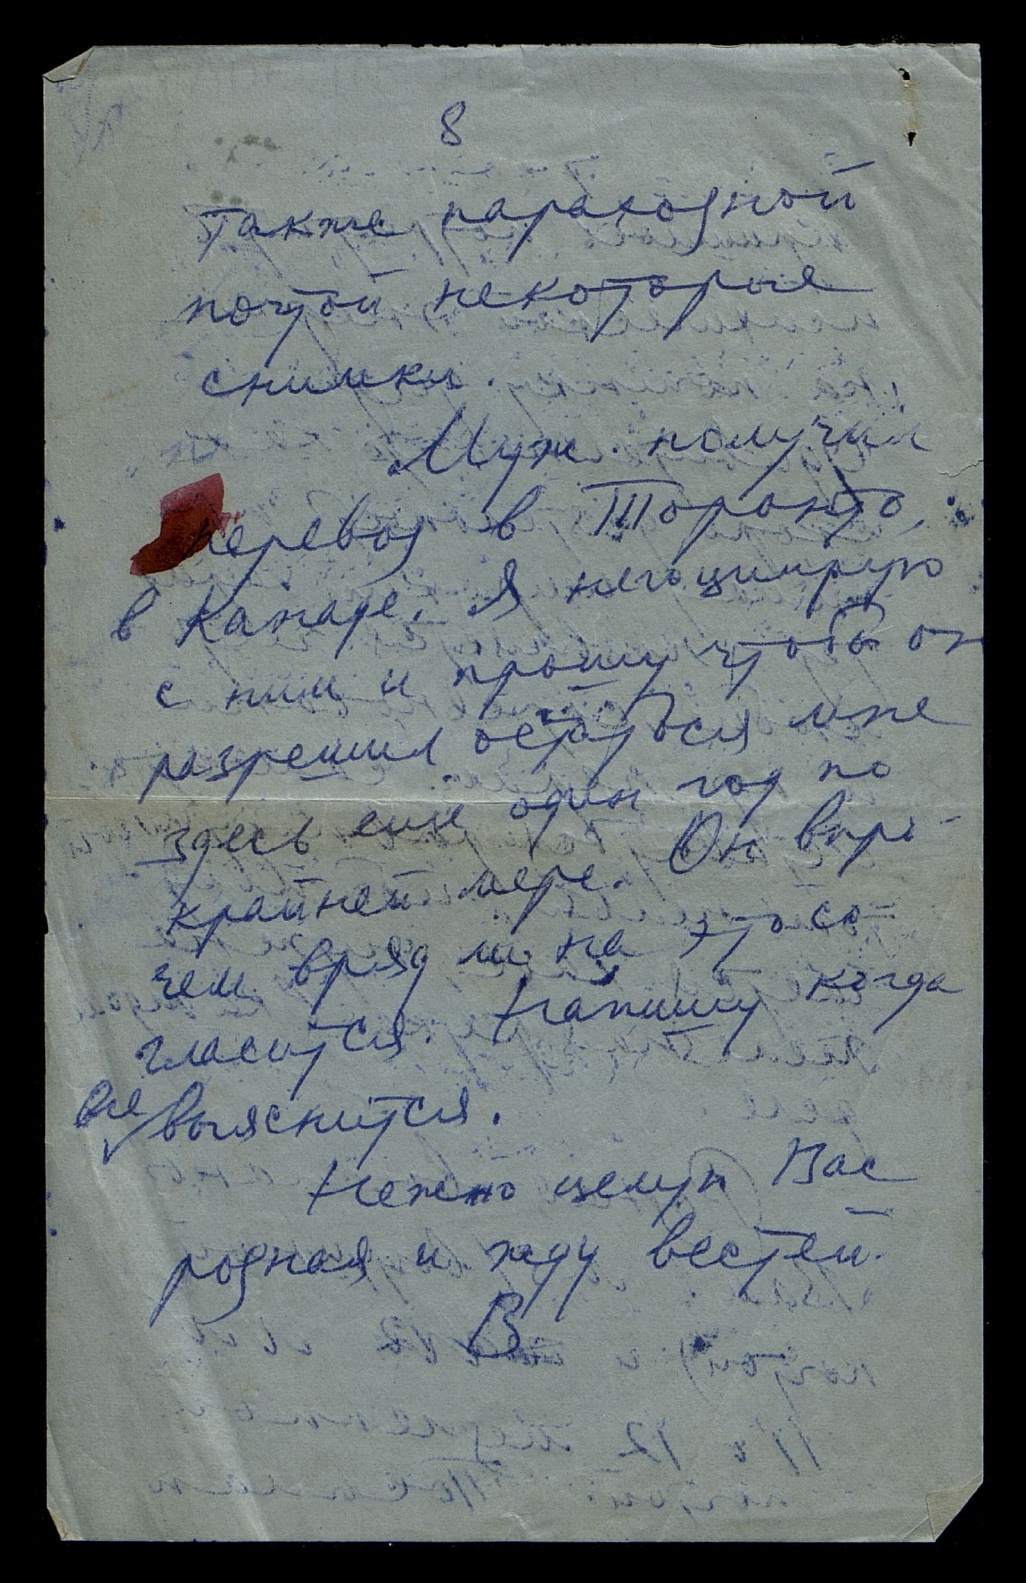 8
также параходной
почтой некоторые
снимки.
Муж получил
перевод в Торонто,
в Канаде. Я негоциирую
с ним и прошу чтобы он
разрешил остаться мне
здесь еще один год по
крайней мере. Он впро-
чем вряд ли на это со-
гласится. Напишу когда
все выяснится.
Нежно целую Вас
родная и жду вестей.
В